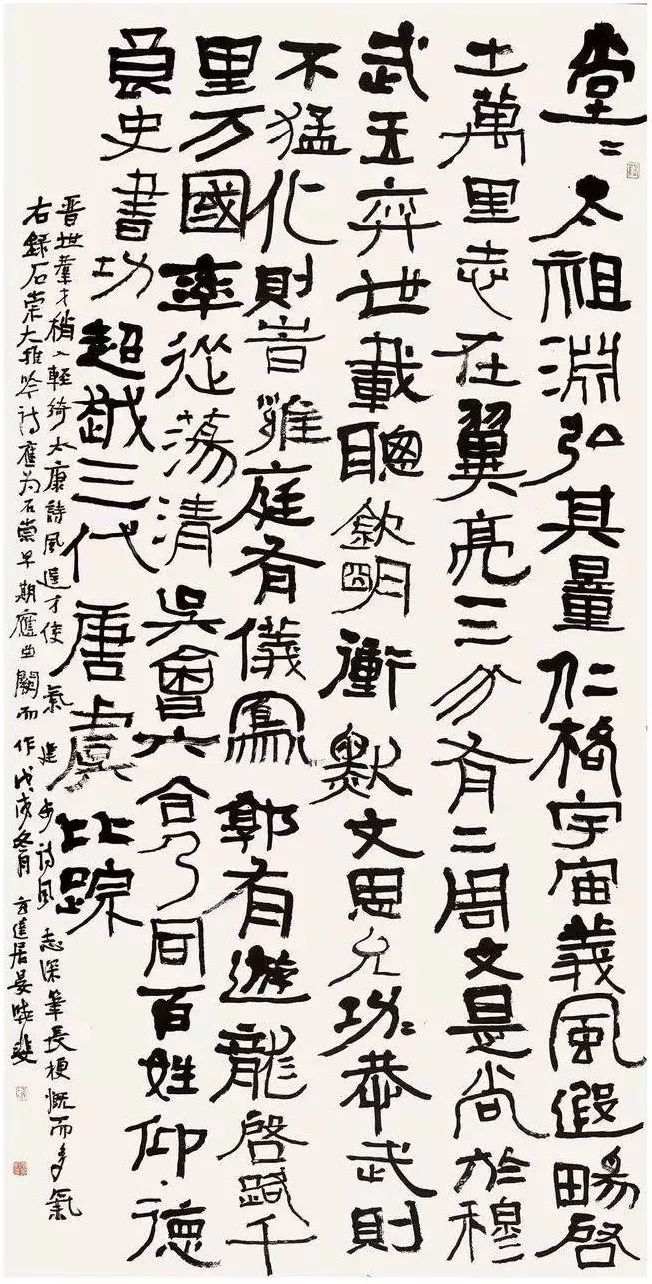 堂〻太祖淵弘其量仁格宇宙義風遐暢啓
土萬里志在翼亮三分有二周文是尚於穆
武王奕世載聰欽明衝默文思允功〻恭武則
不猛化則旹雍庭有儀鳳郭有遊龍啓路千
里万國率從蕩清吳會六合乃同百姓仰德
良史書功超越三代唐虞比踪
晋世羣才稍入輕綺太康詩風逞才使氣進步詩風志深筆長梗慨而多氣
右録石崇大雅吟詩應为石崇早期應曲闋而作戊戌冬月